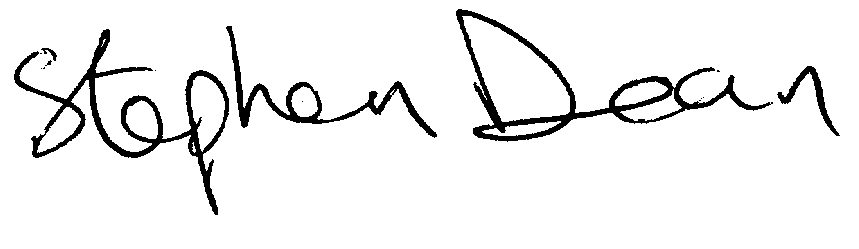 Stephen Dean